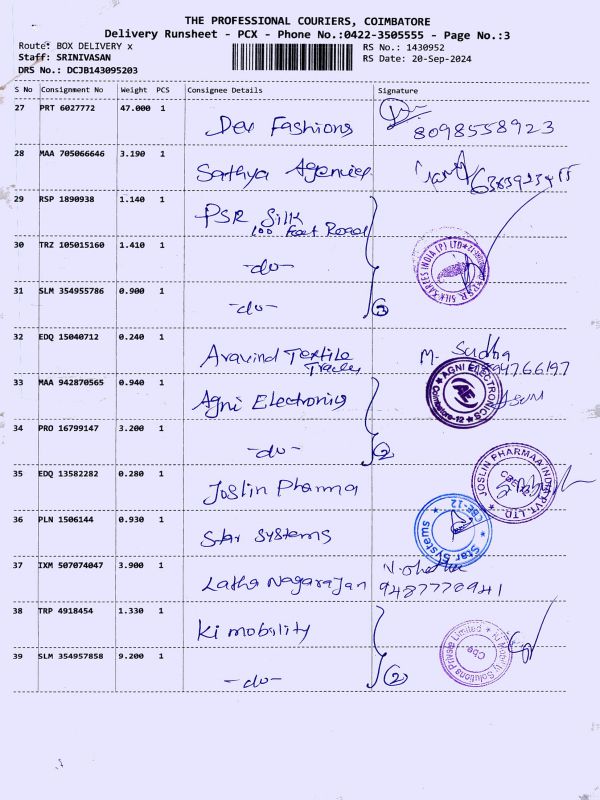 THE PROFESSIONAL COURIERS, COIMBATORE
Delivery Runsheet - PCX - Phone No.:0422-3505555 - Page No.:3
Route: BOX DELIVERY x
RS No.: 1430952
Staff: SRINIVASAN
RS Date: 20-Sep-2024
DRS No.: DCJB143095203
S No Consignment No Weight PCS Consignee Details Signature
27 PRT 6027772 47.000 1 Dev Fashions 8098558923
28 MAA 705066646 3.190 1 Sathya Agencies
29 RSP 1890938 1.140 1 PSR Silk
100 Feet Road
30 TRZ 105015160 1.410 1 -do-
31 SLM 354955786 0.900 1 -do- 3
32 EDQ 15040712 0.240 1 Aravind Textile M. Sudha
33 MAA 942870565 0.940 1 Agni Electronics AGNI ELECTRONICS Coimbatore-12 AE
34 PRO 16799147 3.200 1 -do- 2
35 EDQ 13582282 0.280 1 Joslin Pharma JOSLIN PHARMAA INDIA PVT. LTD
36 PLN 1506144 0.930 1 Star Systems Star Systems CBE-12
37 IXM 507074047 3.900 1 Latha Nagarajan 9487770941
38 TRP 4918454 1.330 1 Ki mobility Ki Mobility Solutions Private Limited Cbe
39 SLM 354957858 9.200 1 -do- 2